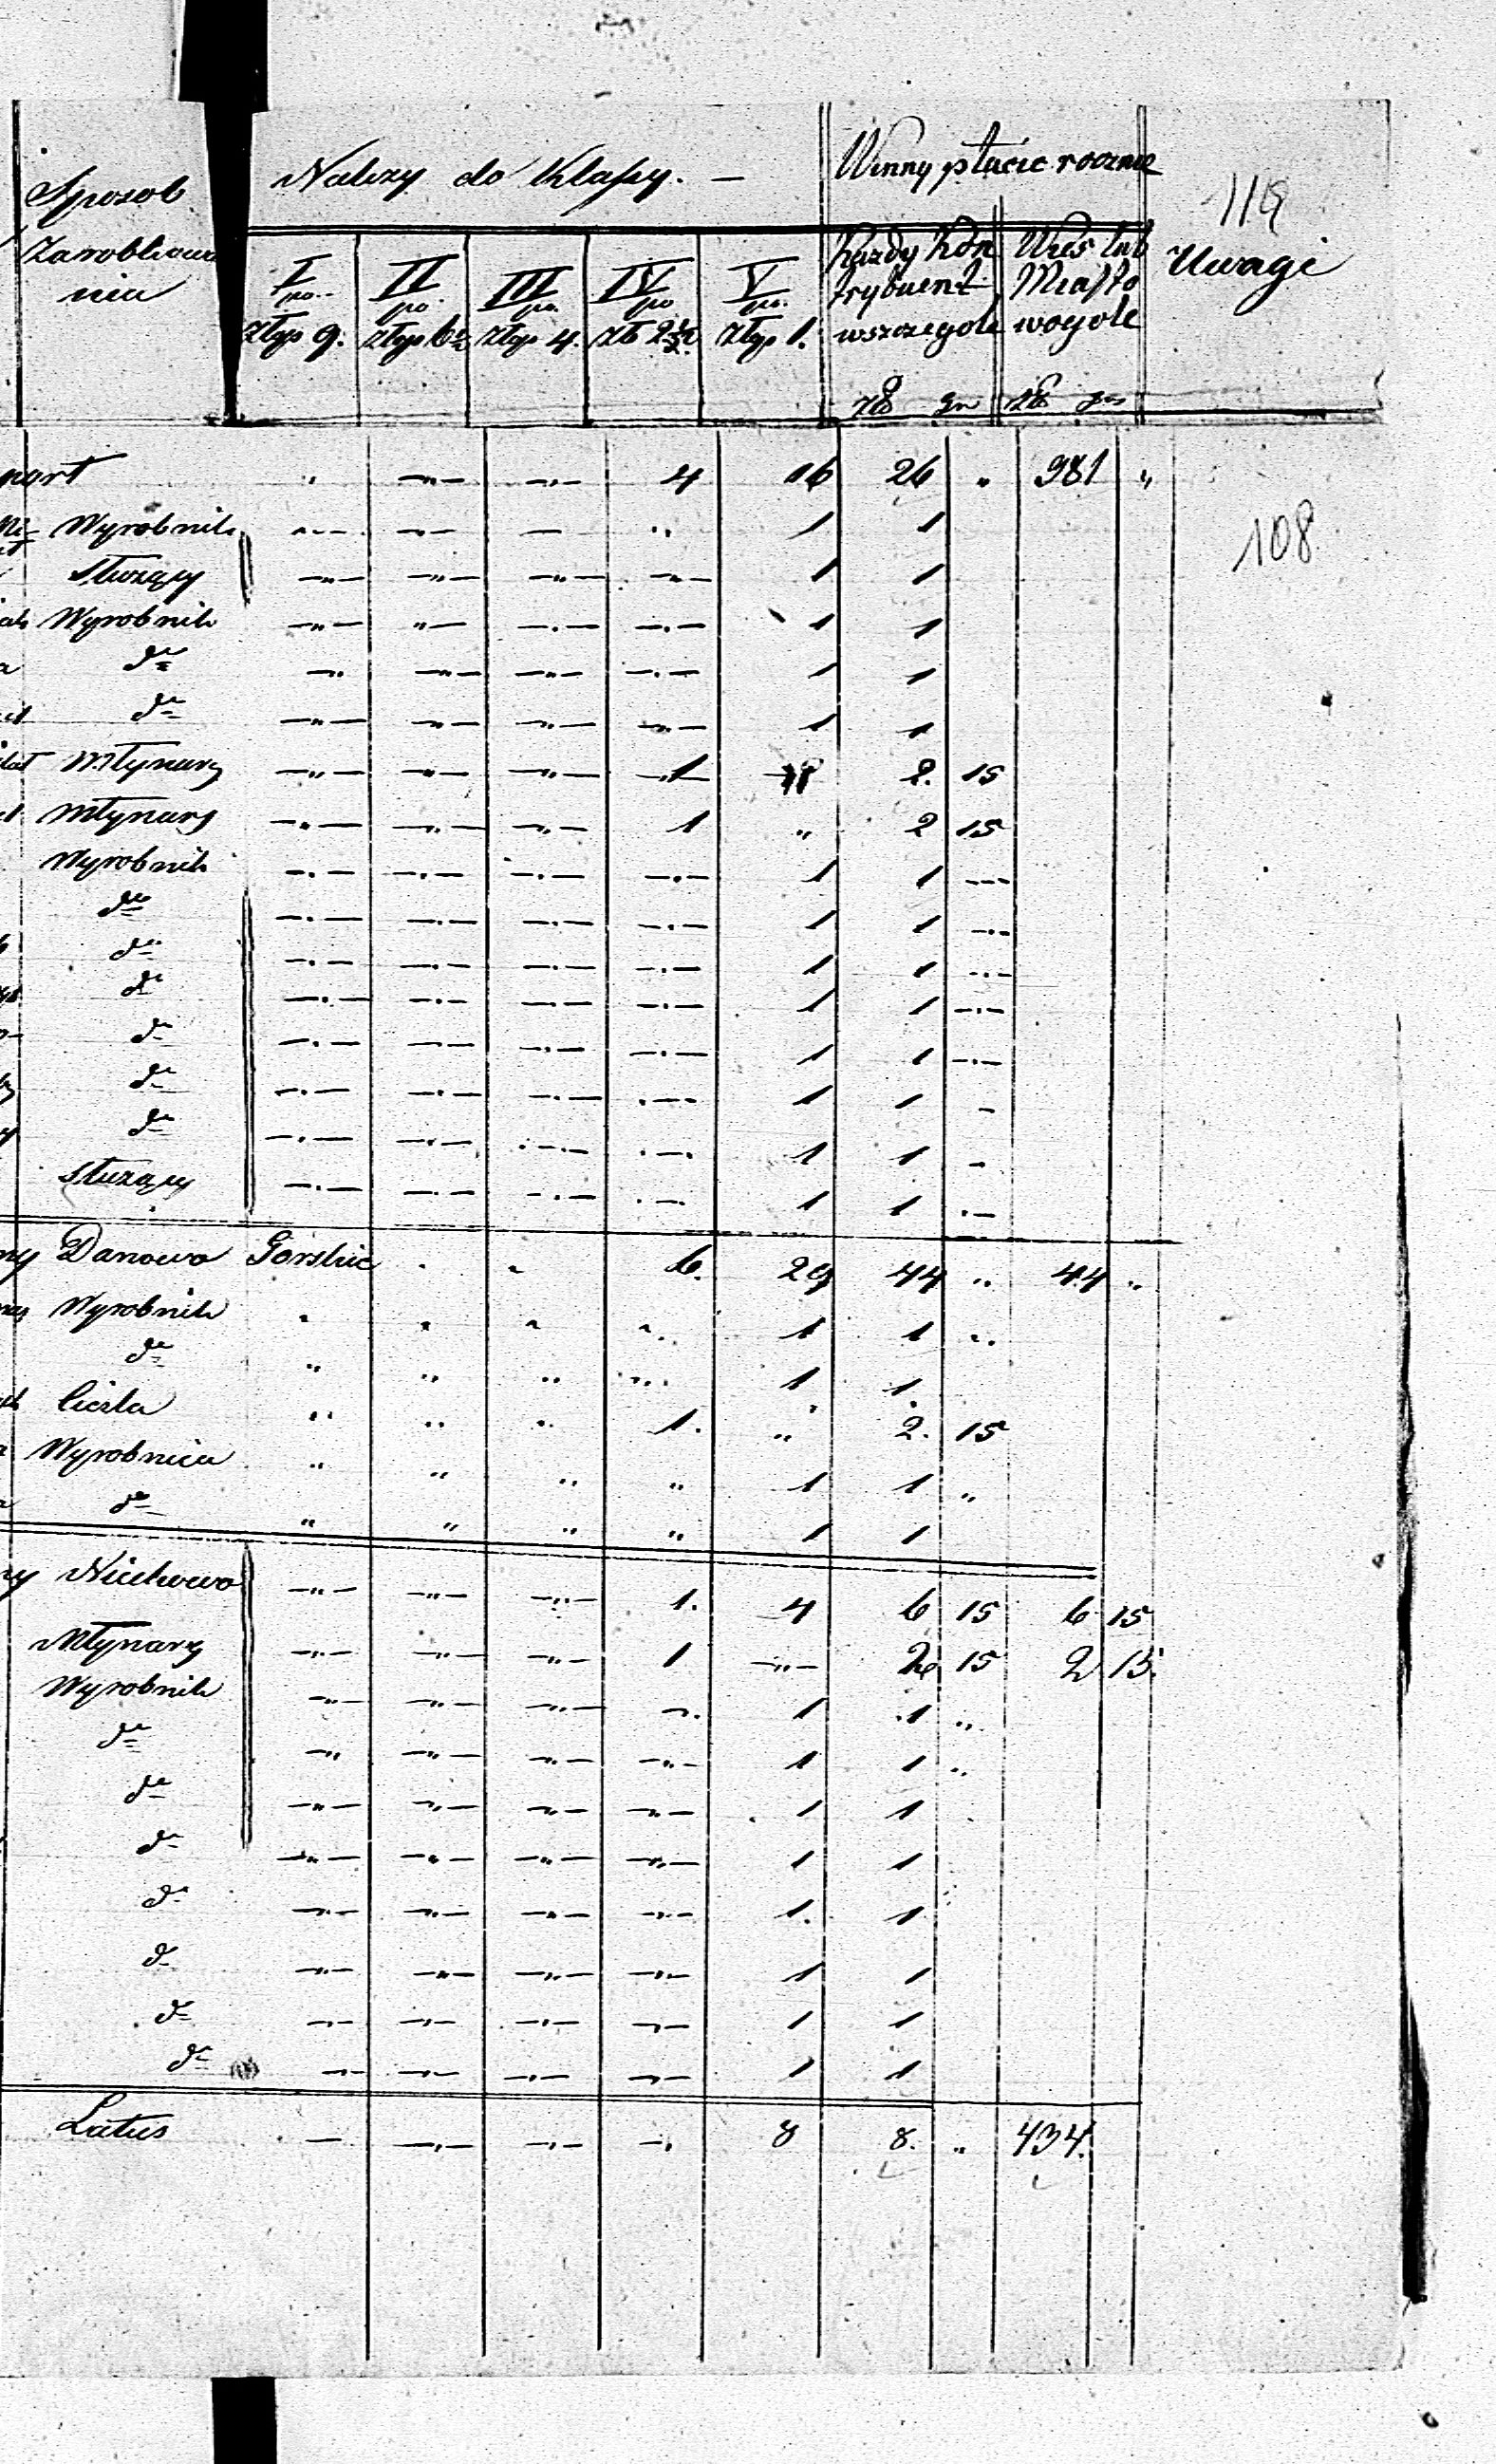 Sposob Zarobkowania
Należy do Klassy. —
Winny płacić rocznie
119
Uwagi
I po złtp 9.
II po złtp 6
III po złtp 4.
IV po zł 2½
V po złtp 1.
Każdy Kontrybuent wszczególe
Wieś lub Miasto wogóle
zł gr zł gr
port . —„— —„— 4 16 26 „ 381 „
108
Wyrobnik —„— —„— — „ 1 1
Służący —„— —„— —„— —„— 1 1
Wyrobnik —„— „— —„— —„— 1 1
do —„ —„— —„— —„— 1 1
do —„— —„— —„— —„— 1 1
Młynarz —„— —„— —„— 1 2. 15
Młynarz —„— —„— —„— 1 „ 2 15
Wyrobnik —„— —„— —„— —„— 1 1 —„—
do —„— —„— —„— —„— 1 1 —„—
do —„— —„— —„— —„— 1 1 —„—
do —„— —„— —„— —„— 1 1 —„—
do —„— —„— —„— —„— 1 1 —„—
do —„— —„— —„— —„— 1 1 —
do —„— —„— —„— —„— 1 1 —
Służący —„— —„— —„— —„— 1 1 „—
ny Danowo Gorskie . „ 6. 29 44 „ 44 „
Wyrobnik „ „ „ „ 1 1 „
do „ „ „ „ 1 1.
Cieśla „ „ „ 1. „ 2. 15
Wyrobnica „ „ „ „ 1 1 „
do „ „ „ „ 1 1
ny Niećkowo —„— —„— —„— 1. 4 6 15 6 15
Młynarz —„— —„— —„— 1 —„— 2 15 2 15.
Wyrobnik —„— —„— —„— —„ 1 1 „
do —„ —„— —„— —„— 1 1 „
do —„— —„— —„— —„— 1 1
do —„— —„— —„— —„— 1 1
do —„— —„— —„— —„— 1. 1
do —„— —„— —„— —„— 1 1
do —„— —„— —„— —„— 1 1
do —„— —„— —„— —„— 1 1
Latus — —„— —„— —„ 8 8. „ 434.